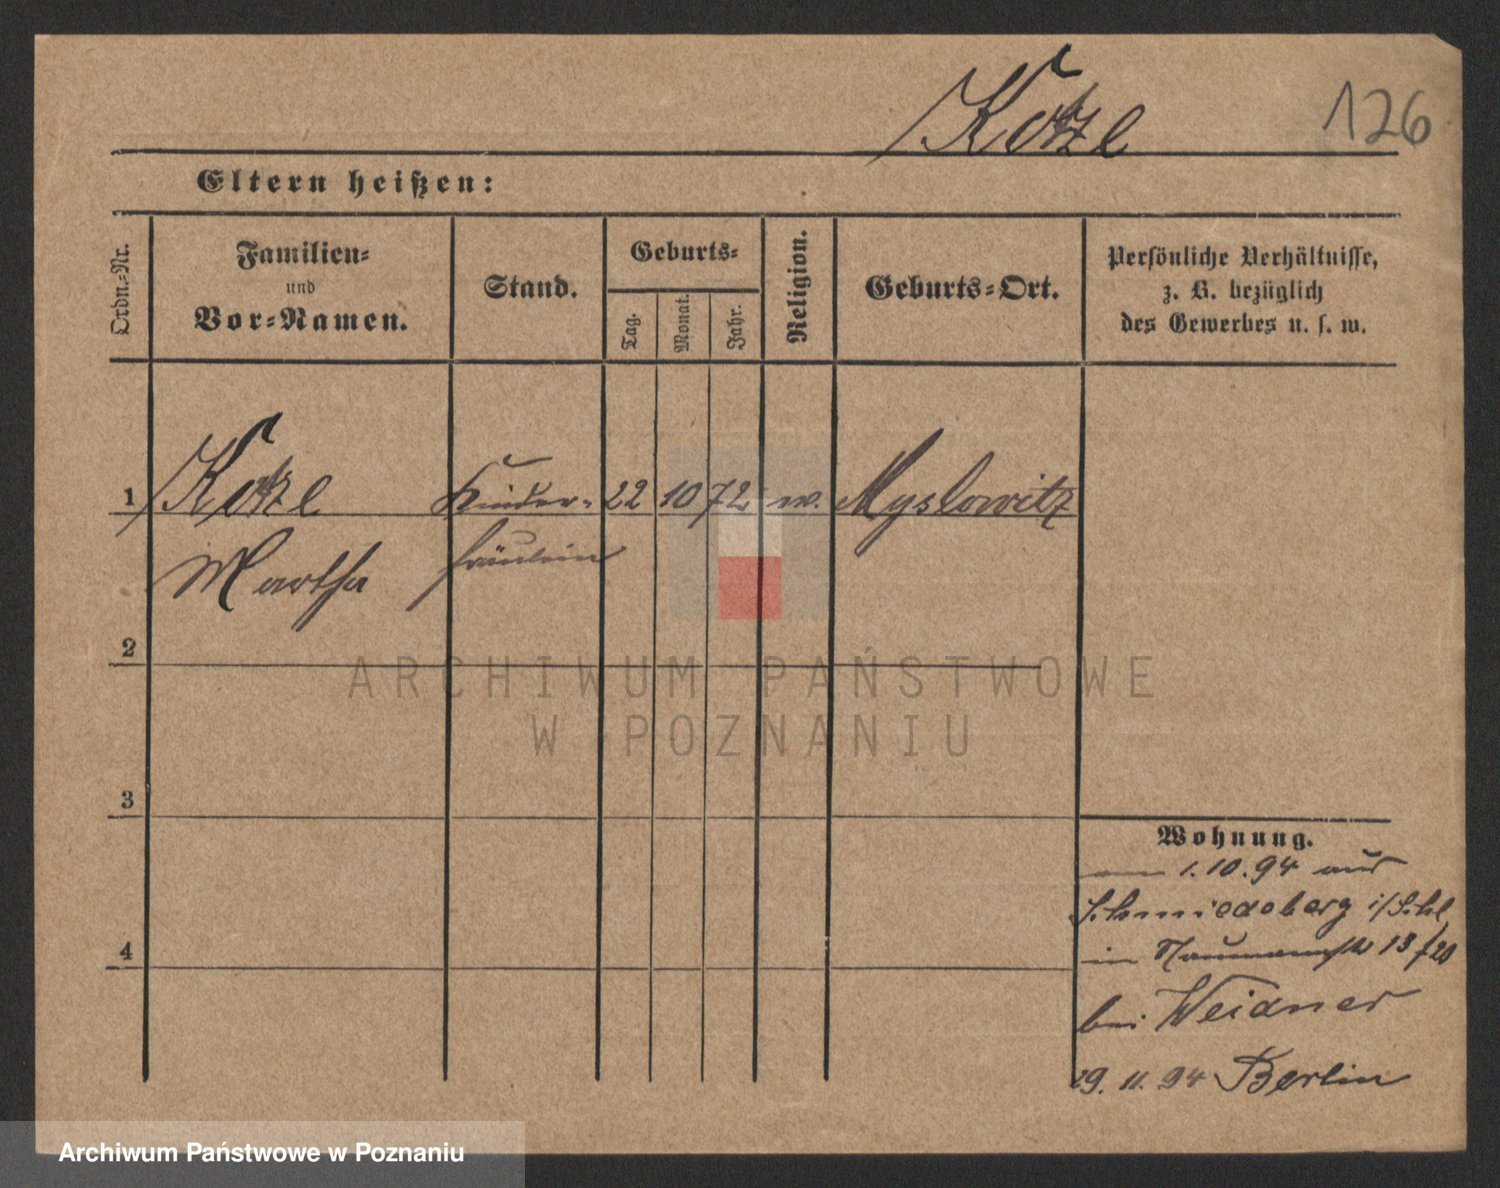 Kotzl
126
Eltern heißen:
Ordn.-Nr.
Familien-
und
Vor-Namen.
Stand.
Geburts-
Tag.
Monat.
Jahr.
Religion.
Geburts-Ort.
Persönliche Verhältnisse,
z. B. bezüglich
des Gewerbes u. s. w.
1 Kotzl Kinder- 22 10 72 Myslowitz
Martha fräulein
2
3
4
Wohnung.
1.10.94 aus
Schmiedeberg i/Schl
in Naumannstr 13
bei Weidner
29.11.94 Berlin
ARCHIWUM PAŃSTWOWE
W POZNANIU
Archiwum Państwowe w Poznaniu